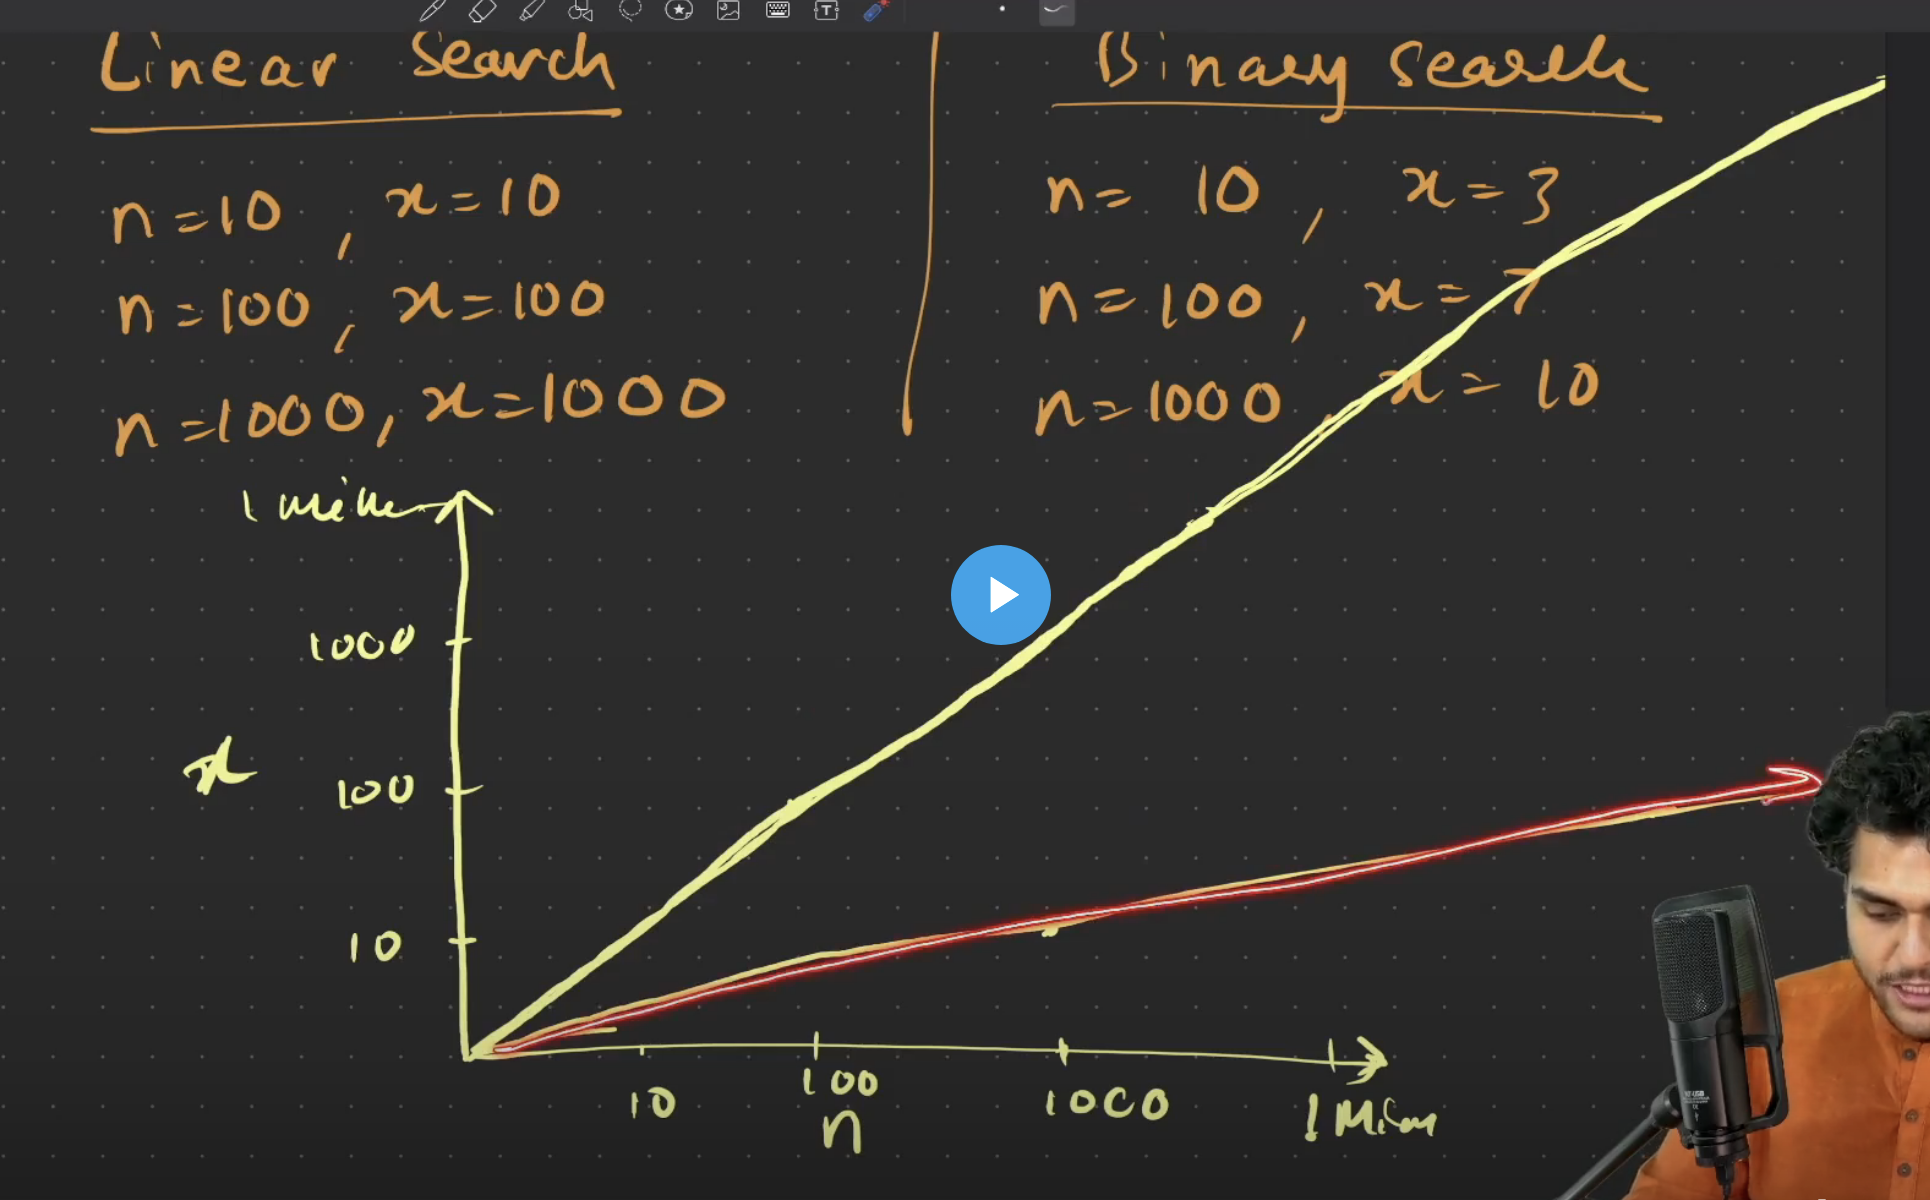 Linear Search
n=10, x=10
n=100, x=100
n=1000, x=1000
Binary Search
n= 10, x=3
n=100, x=7
n=1000, x=10
1000
x
100
10
10
100
1000
n